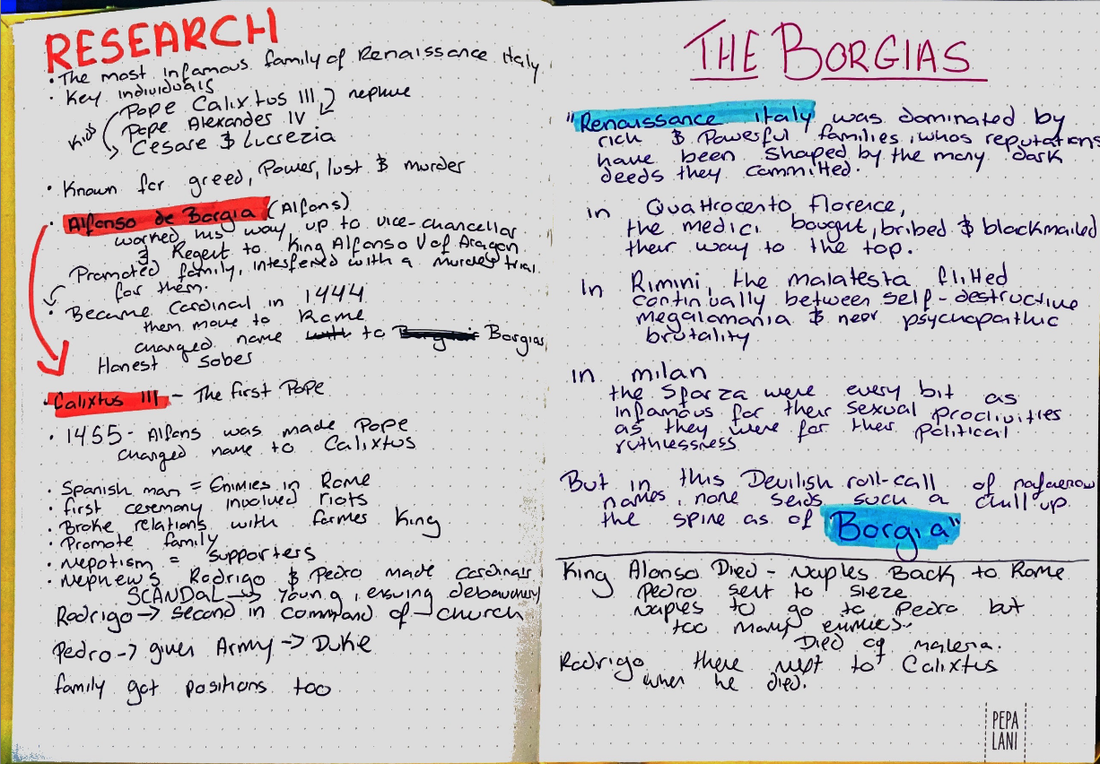 RESEARCH
• The most infamous family of Renaissance Italy
• Key individuals
Pope Calixtus III nephue
Kids Pope Alexandes IV
Cesare & Lucrezia
• Known for greed, Power, lust & murder
• Alfonso de Borgia (Alfons)
worked his way up to vice-chancellor
& Regent to King Alfonso V of Aragon
Promoted family, intesfered with a murder trial
for them.
• Became Cardinal in 1444
them move to Rome
changed name to Borgias
Honest sober
• Calixtus III - The first Pope
• 1455 - Alfons was made Pope
changed name to Calixtus
• Spanish man = Enimies in Rome
• first ceremony involved riots
• Broke relations with former King
• Promote family
• Nepotism = supporters
• Nephew's Rodrigo & Pedro made cardinals
SCANDAL → Young, ensuing debauchery
Rodrigo → second in command of church
Pedro → given Army → Duke
family got positions too
THE BORGIAS
"Renaissance italy was dominated by
rich & Powerful families, whos reputations
have been shaped by the many dark
deeds they committed.
in Quattrocento florence,
the medici bought, bribed & blackmailed
their way to the top.
in Rimini, the malatesta flitted
continually between self-destructive
megalomania & near psychopathic
brutality
in milan
the Sforza were every bit as
infamous for their sexual proclivities
as they were for their political
ruthlessness
But in this Devilish roll-call of
names, none sends such a chill up
the spine as of "Borgia"
King Alonso Died - Naples Back to Rome
Pedro sent to sieze
Naples to go to Pedro but
too many enimies.
Died of maleria.
Rodrigo there next to Calixtus
when he died.
PEPA
LANI